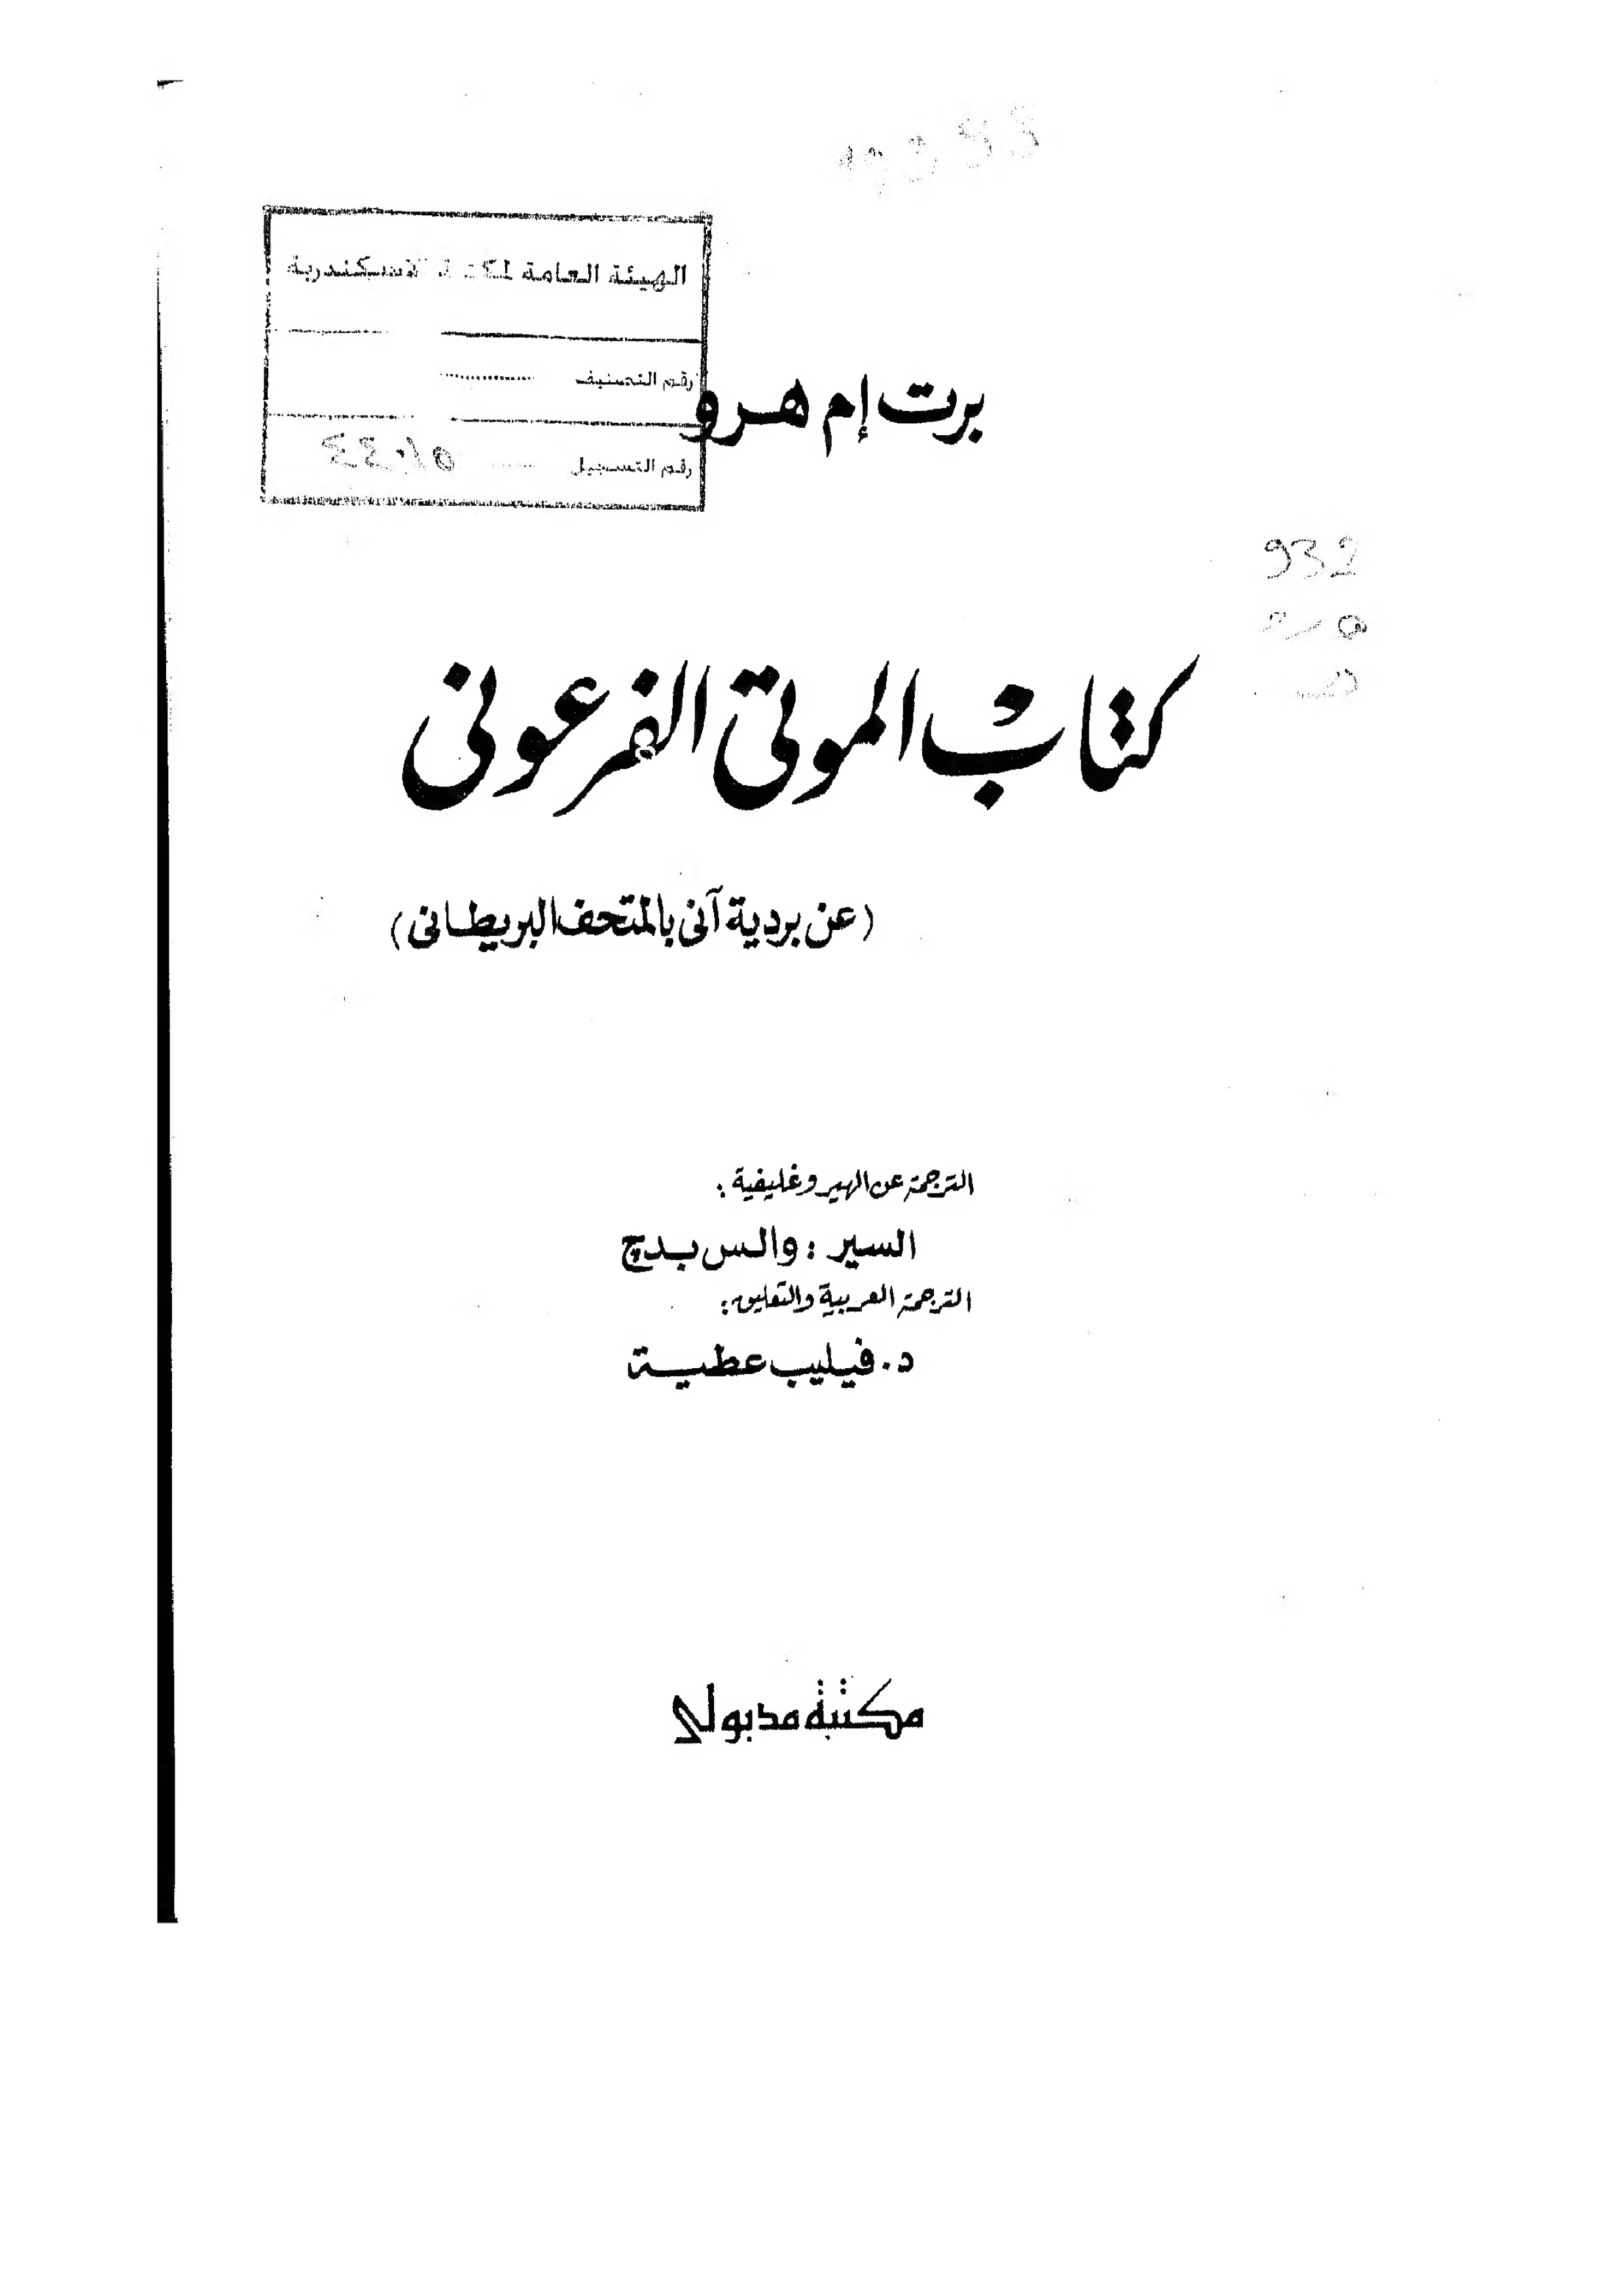 الهيئة العامة الاسكندرية
رقم التصنيف
رقم التسجيل
برت إم هرو
932
كتاب الموتى الفرعونى
(عن بردية آنى بالمتحف البريطانى)
الترجمة عن الهيروغليفية :
السير : والس بدج
الترجمة العربية والتعليق :
د. فيليب عطية
مكتبة مدبولى